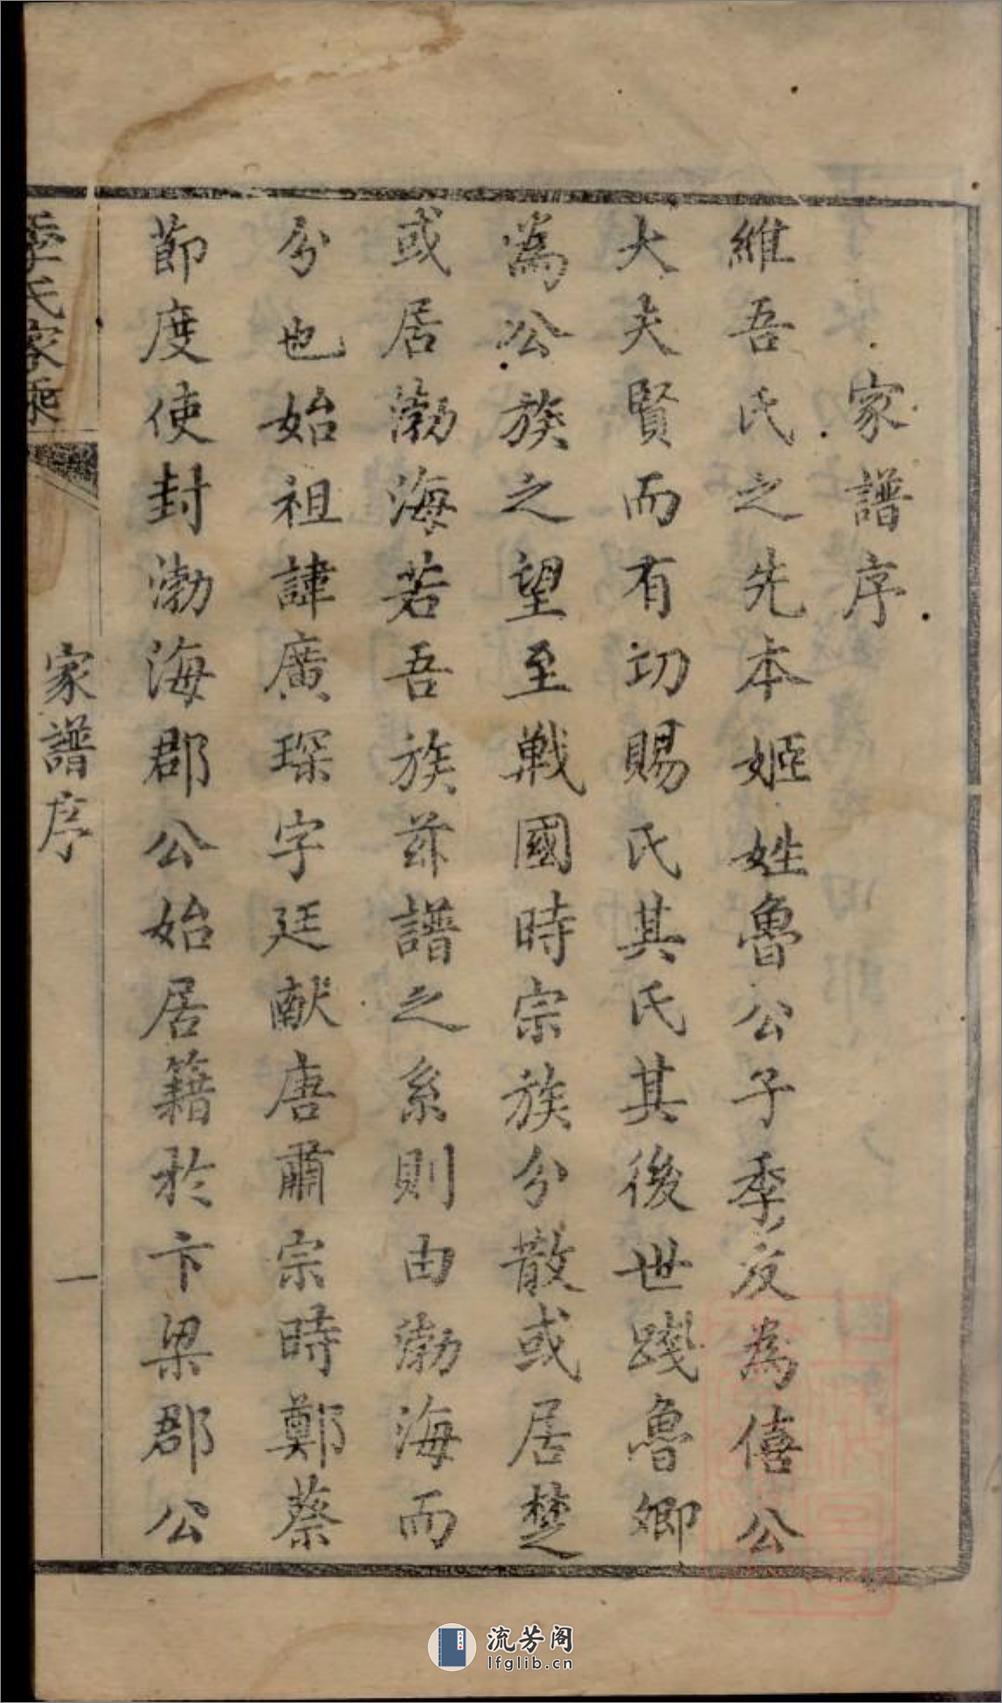 家譜序
維吾氏之先本姬姓魯公子季友為僖公
大夫賢而有功賜氏其氏其後世踐魯卿
為公族之望至戰國時宗族分散或居楚
或居渤海若吾族茲譜之系則由渤海而
分也始祖諱廣琛字廷献唐肅宗時鄭蔡
節度使封渤海郡公始居籍於卞梁郡公
季氏家乘
家譜序
一
流芳阁
lfglib.cn